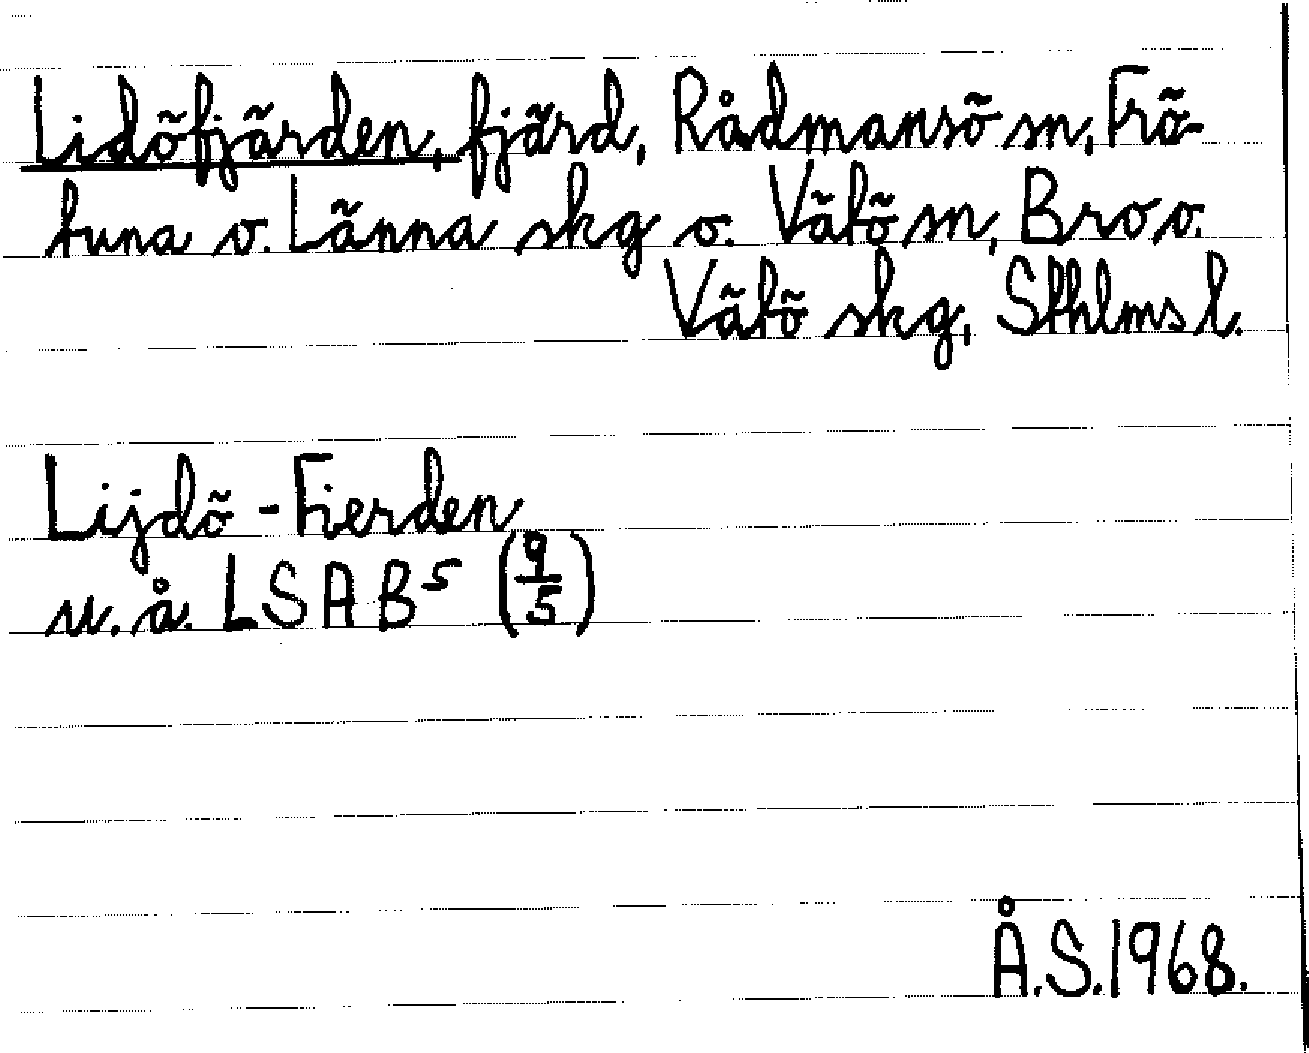 Lidöfjärden, fjärd, Rådmansö sn, Frö-
tuna o. Länna skg o. Vätö sn, Bro o.
Vätö skg, Sthlms l.
Lijdö-Fierden
u. å. LSA B5 (9/5)
Å.S. 1968.